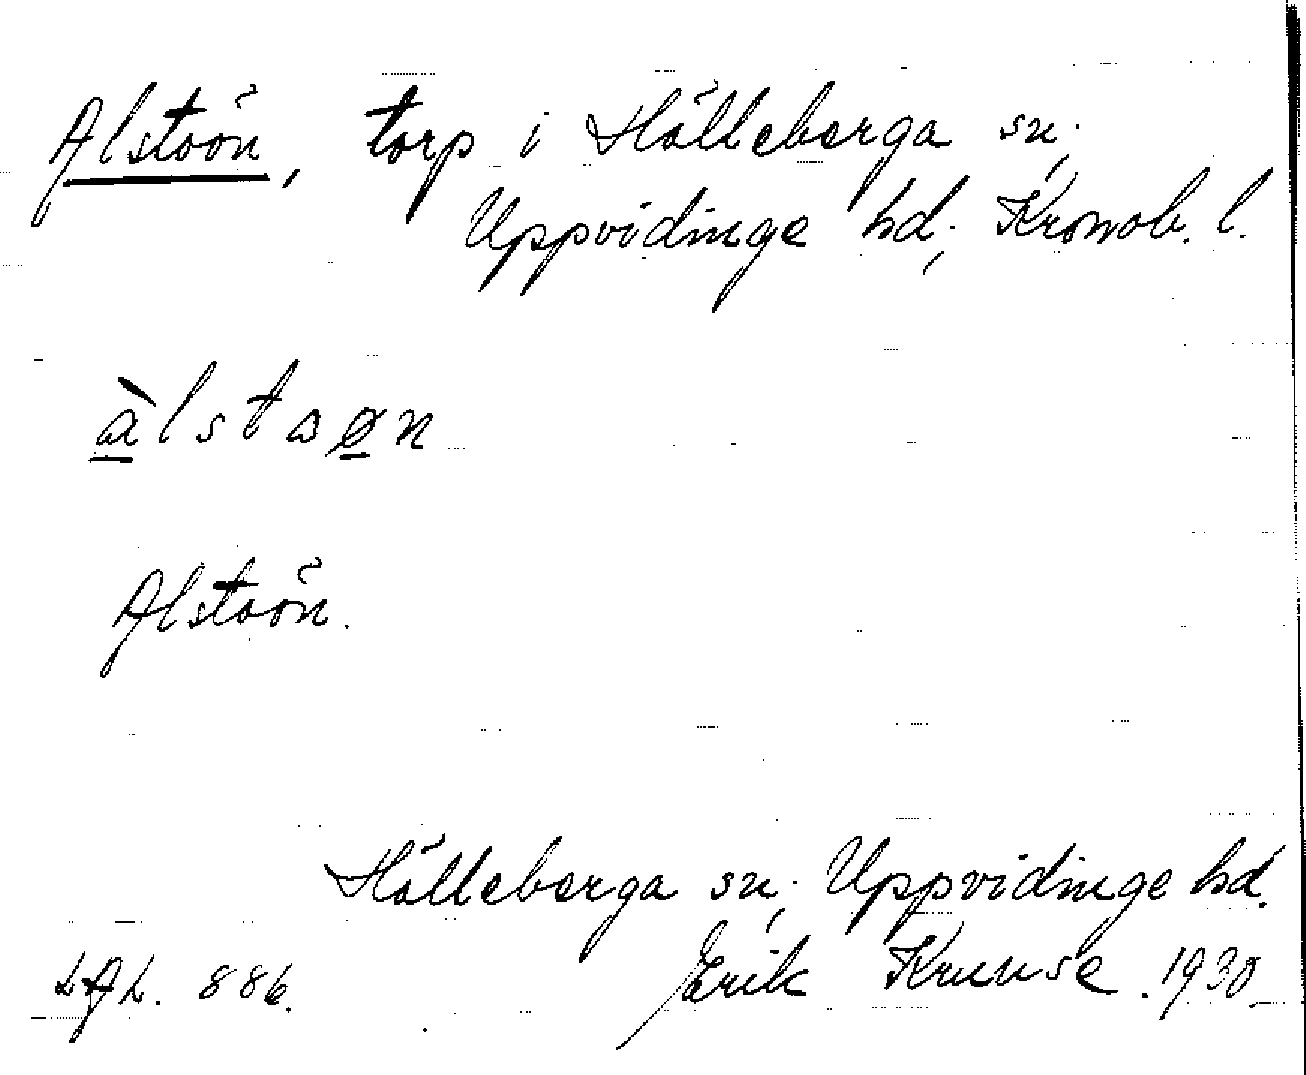 Alstaön, torp i Hälleberga sn;
Uppvidinge hd; Kronob. l.
àlstaøn
Alstaön.
Hälleberga sn; Uppvidinge hd.
LAL. 886. Erik Kruuse. 1930